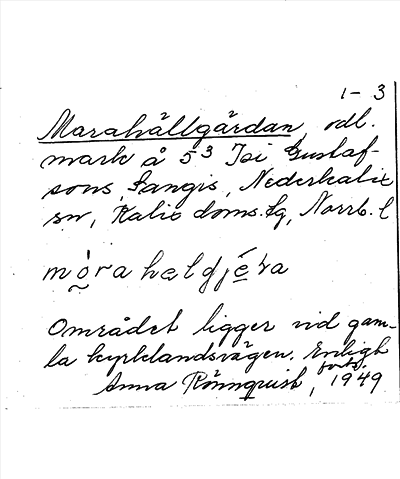 1- 3
Marahällgärdan, odl.
mark å 5³ Joi Gustaf-
sons, Sangis, Nederkalix
sn, Kalix doms.sg, Norrb. l
området ligger vid gam-
la kyrklandsvägen. Enligt
forts.
Anna Rönnquist, 1949